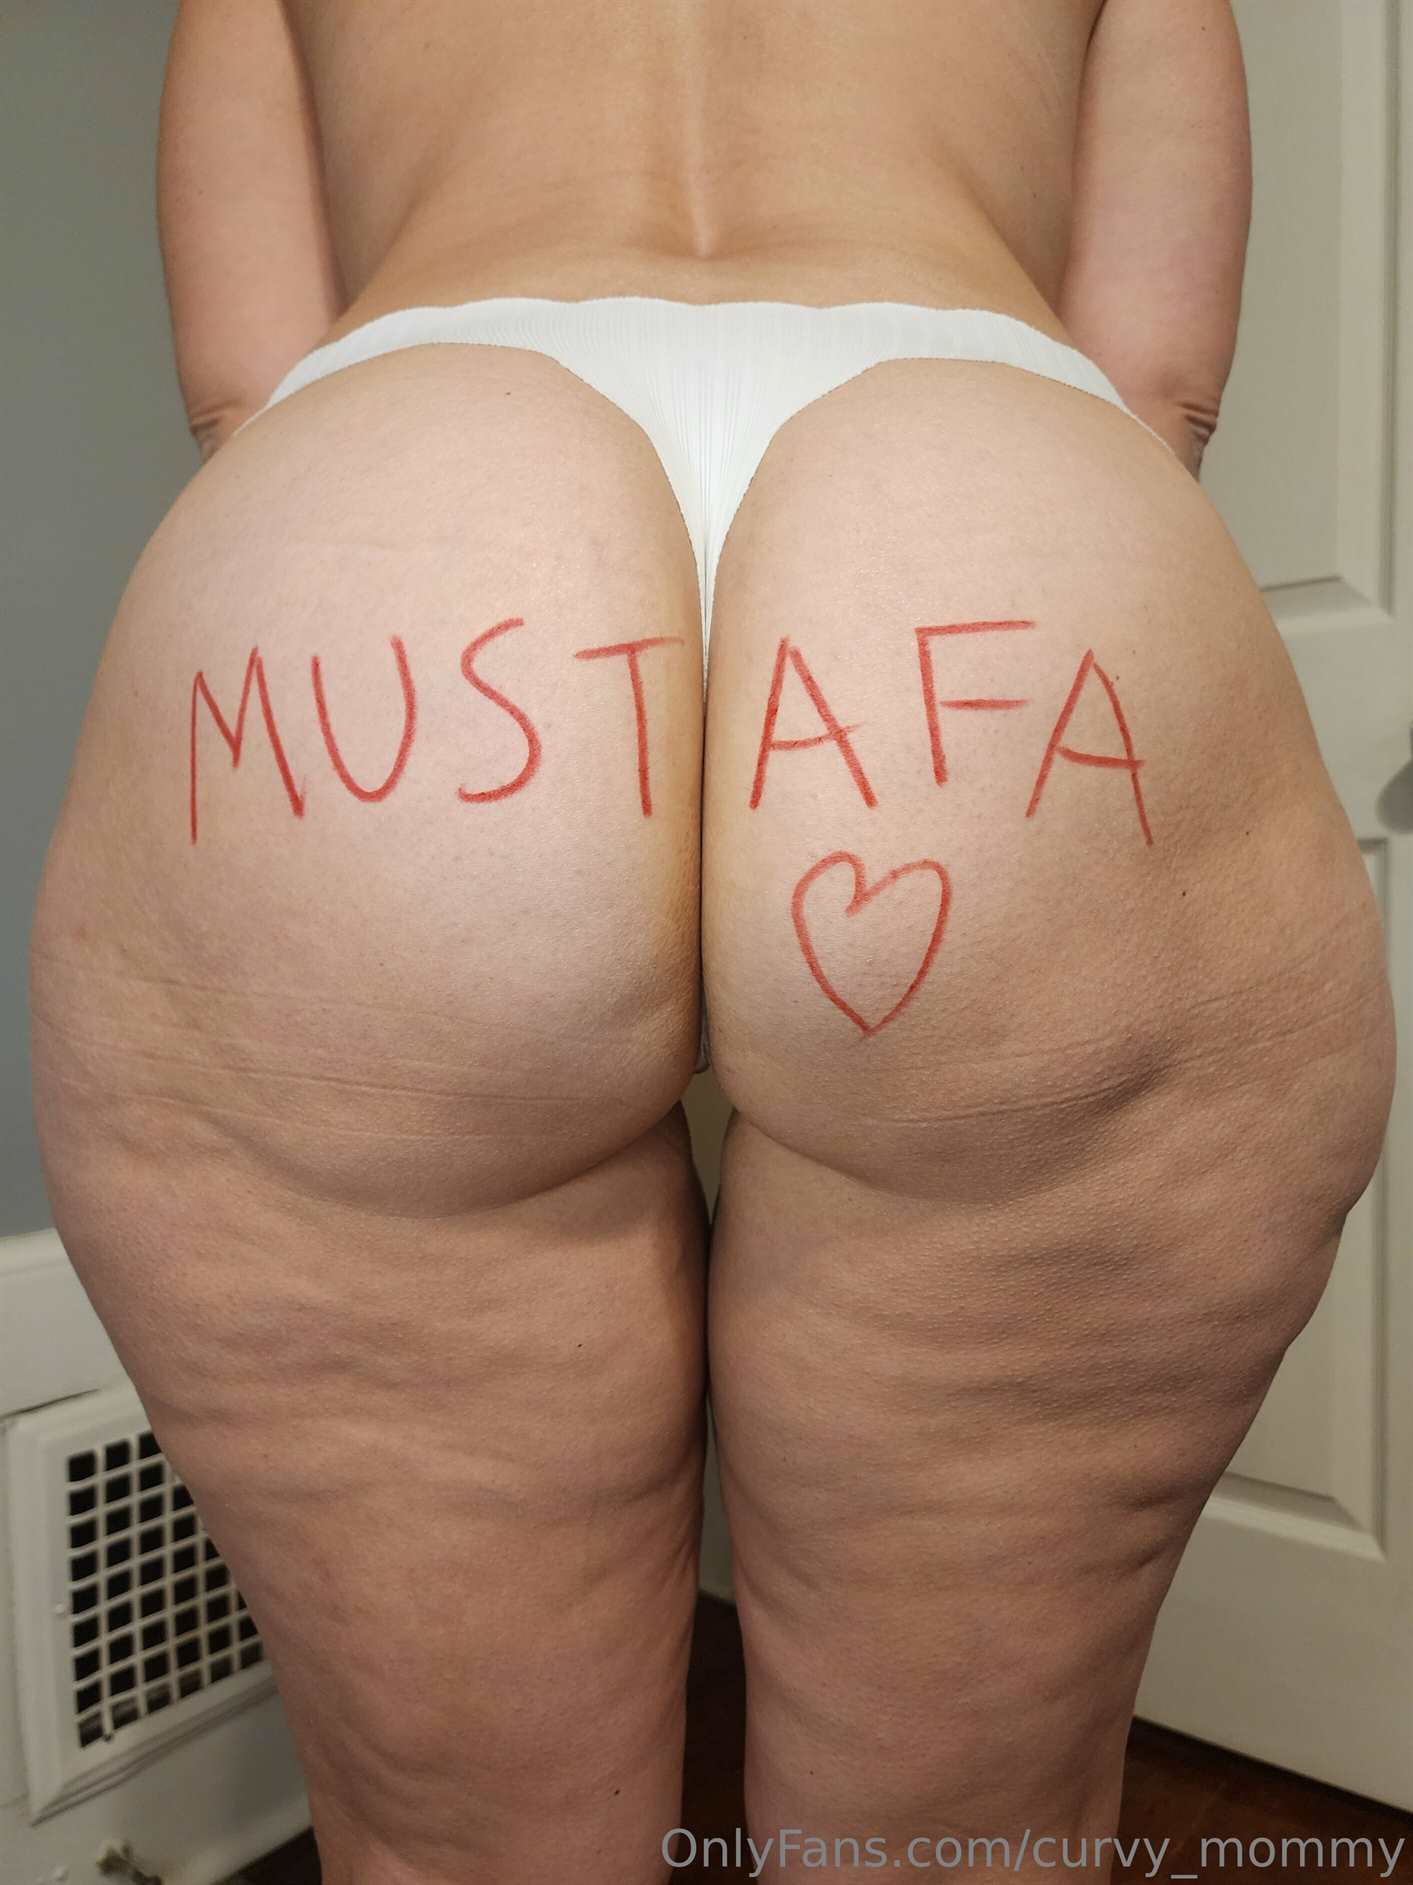 MUSTAFA
OnlyFans.com/curvy_mommy